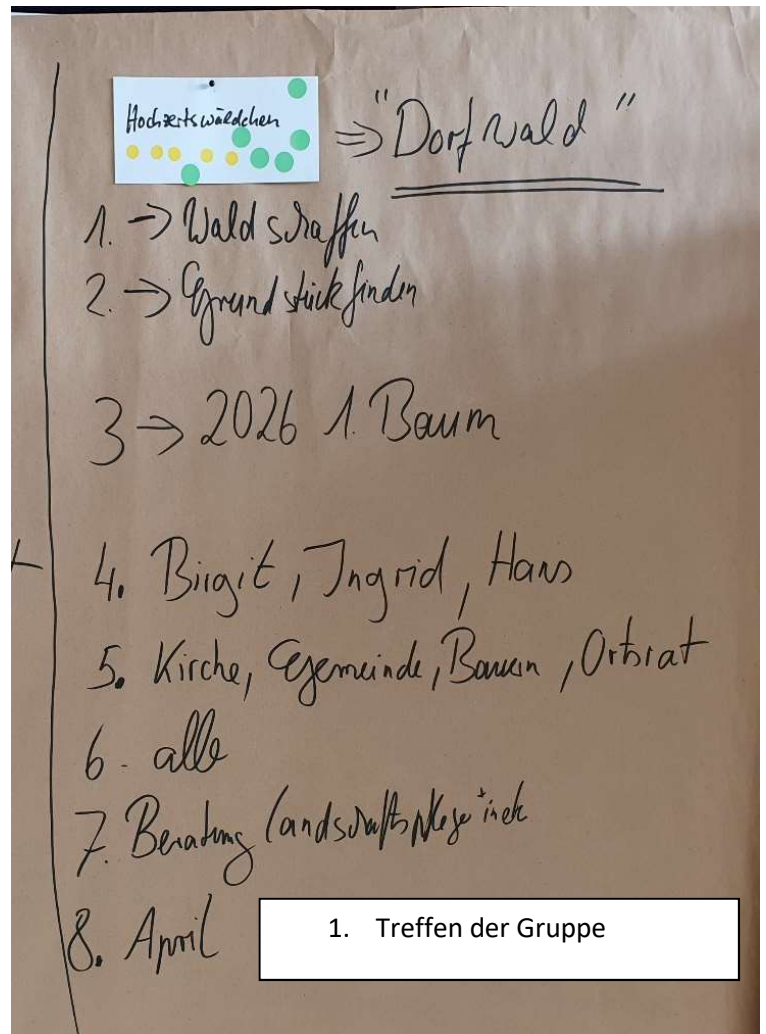 Hochzeitswäldchen => "Dorfwald"
1. -> Wald schaffen
2. -> Grundstück finden
3 -> 2026 1. Baum
4. Birgit, Ingrid, Hans
5. Kirche, Gemeinde, Bauern, Ortsrat
6 - alle
7. Beratung Landschaftspflege
8. April
1. Treffen der Gruppe